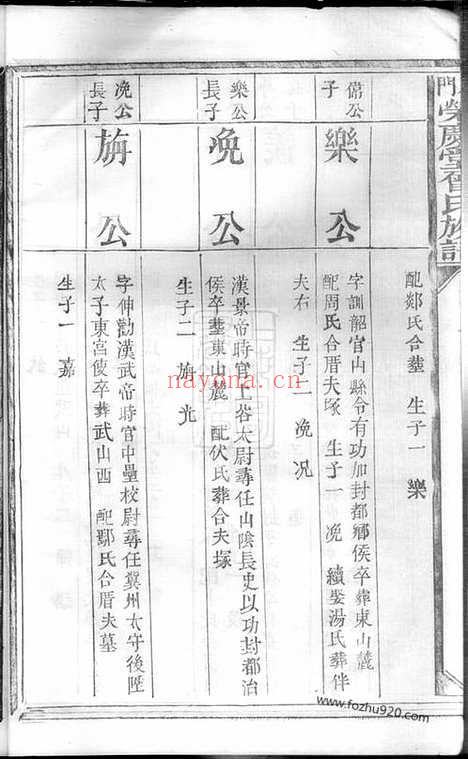 門榮慶堂曾氏族譜
配鄔氏合塟 生子一 樂
儒公
子
樂公
字訓韶官山縣令有功加封都鄉侯卒葬東山麓
配周氏合厝夫塚 生子一 㝃 續娶湯氏葬伴
夫右 生子二 㝃况
樂公
長子
㝃公
漢景帝時官上谷太尉尋任山陰長史以功封都治
侯卒塟東山麓 配伏氏葬合夫塚
生子二 旃光
㝃公
長子
旃公
字伸勸漢武帝時官中壘校尉尋任冀州太守後陞
太子東宮傻卒葬武山西 配鄢氏合厝夫墓
生子一 嘉
nayona.cn
www.fozhu920.com